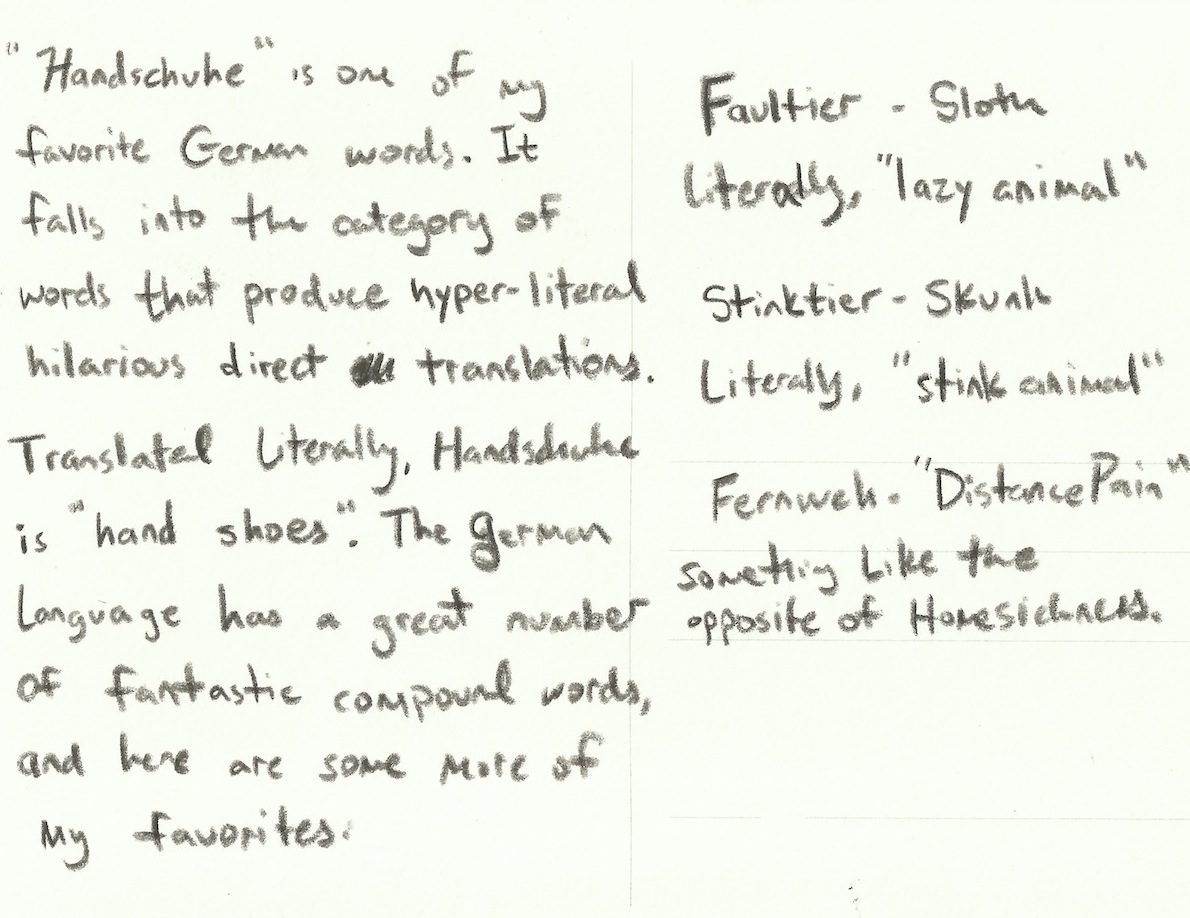 "Handschuhe" is one of my
favorite German words. It
falls into the category of
words that produce hyper-literal
hilarious direct translations.
Translated Literally, Handschuhe
is "hand shoes". The German
Language has a great number
of fantastic compound words,
and here are some more of
my favorites:
Faultier - Sloth
Literally, "lazy animal"
Stinktier - Skunk
Literally, "stink animal"
Fernweh - "Distance Pain"
something like the
opposite of Homesickness.